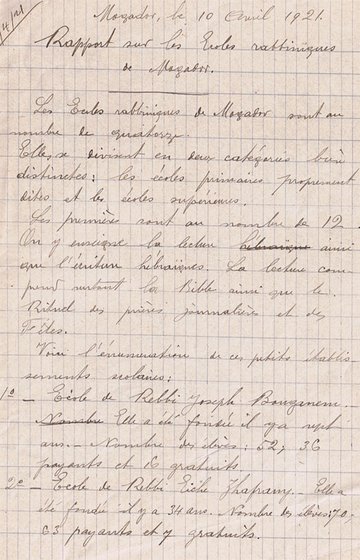 4/21
Mogador, le 10 Avril 1921.
Rapport sur les Ecoles rabbiniques
de Mogador.
Les Ecoles rabbiniques de Mogador sont au
nombre de quatorze.
Elles se divisent en deux catégories bien
distinctes: les écoles primaires proprement
dites et les écoles supérieures.
Les premières sont au nombre de 12.
On y enseigne la lecture hébraique ainsi
que l'écriture hébraïques. La lecture com
prend surtout la Bible ainsi que le
Rituel des prières journalières et des
Fêtes.
Voici l'énumération de ces petits établis
sements scolaires:
1º - Ecole de Rebbi Joseph Bouganem.
Nombre Elle a été fondée il y a sept
ans. - Nombre des élèves: 52; 36
payants et 16 gratuits.
2º - Ecole de Rebbi - Elle a
été fondée il y a 34 ans. Nombre des élèves: 70 -
63 payants et 7 gratuits.